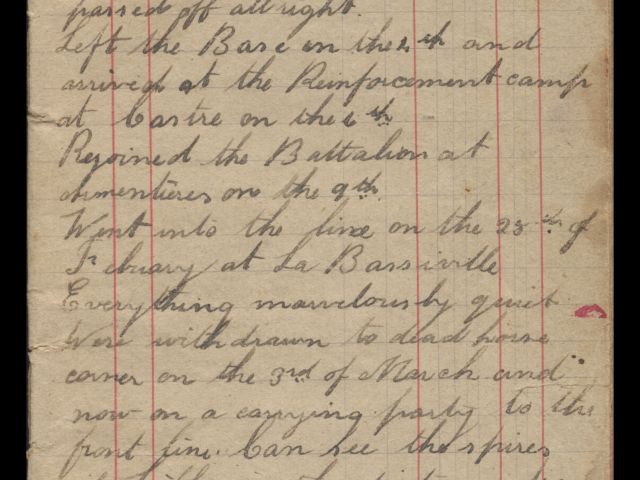 passed off all right.
Left the Base on the 4th and
arrived at the Reinforcement camp
at Castre on the 6th
Rejoined the Battalion at
Armentieres on the 9th.
Went into the line on the 28th of
Febuary at La Bassiville
Everything marvelously quiet
Were withdrawn to dead horse
corner on the 3rd of March and
now on a carrying party to the
front line. Can see the spires